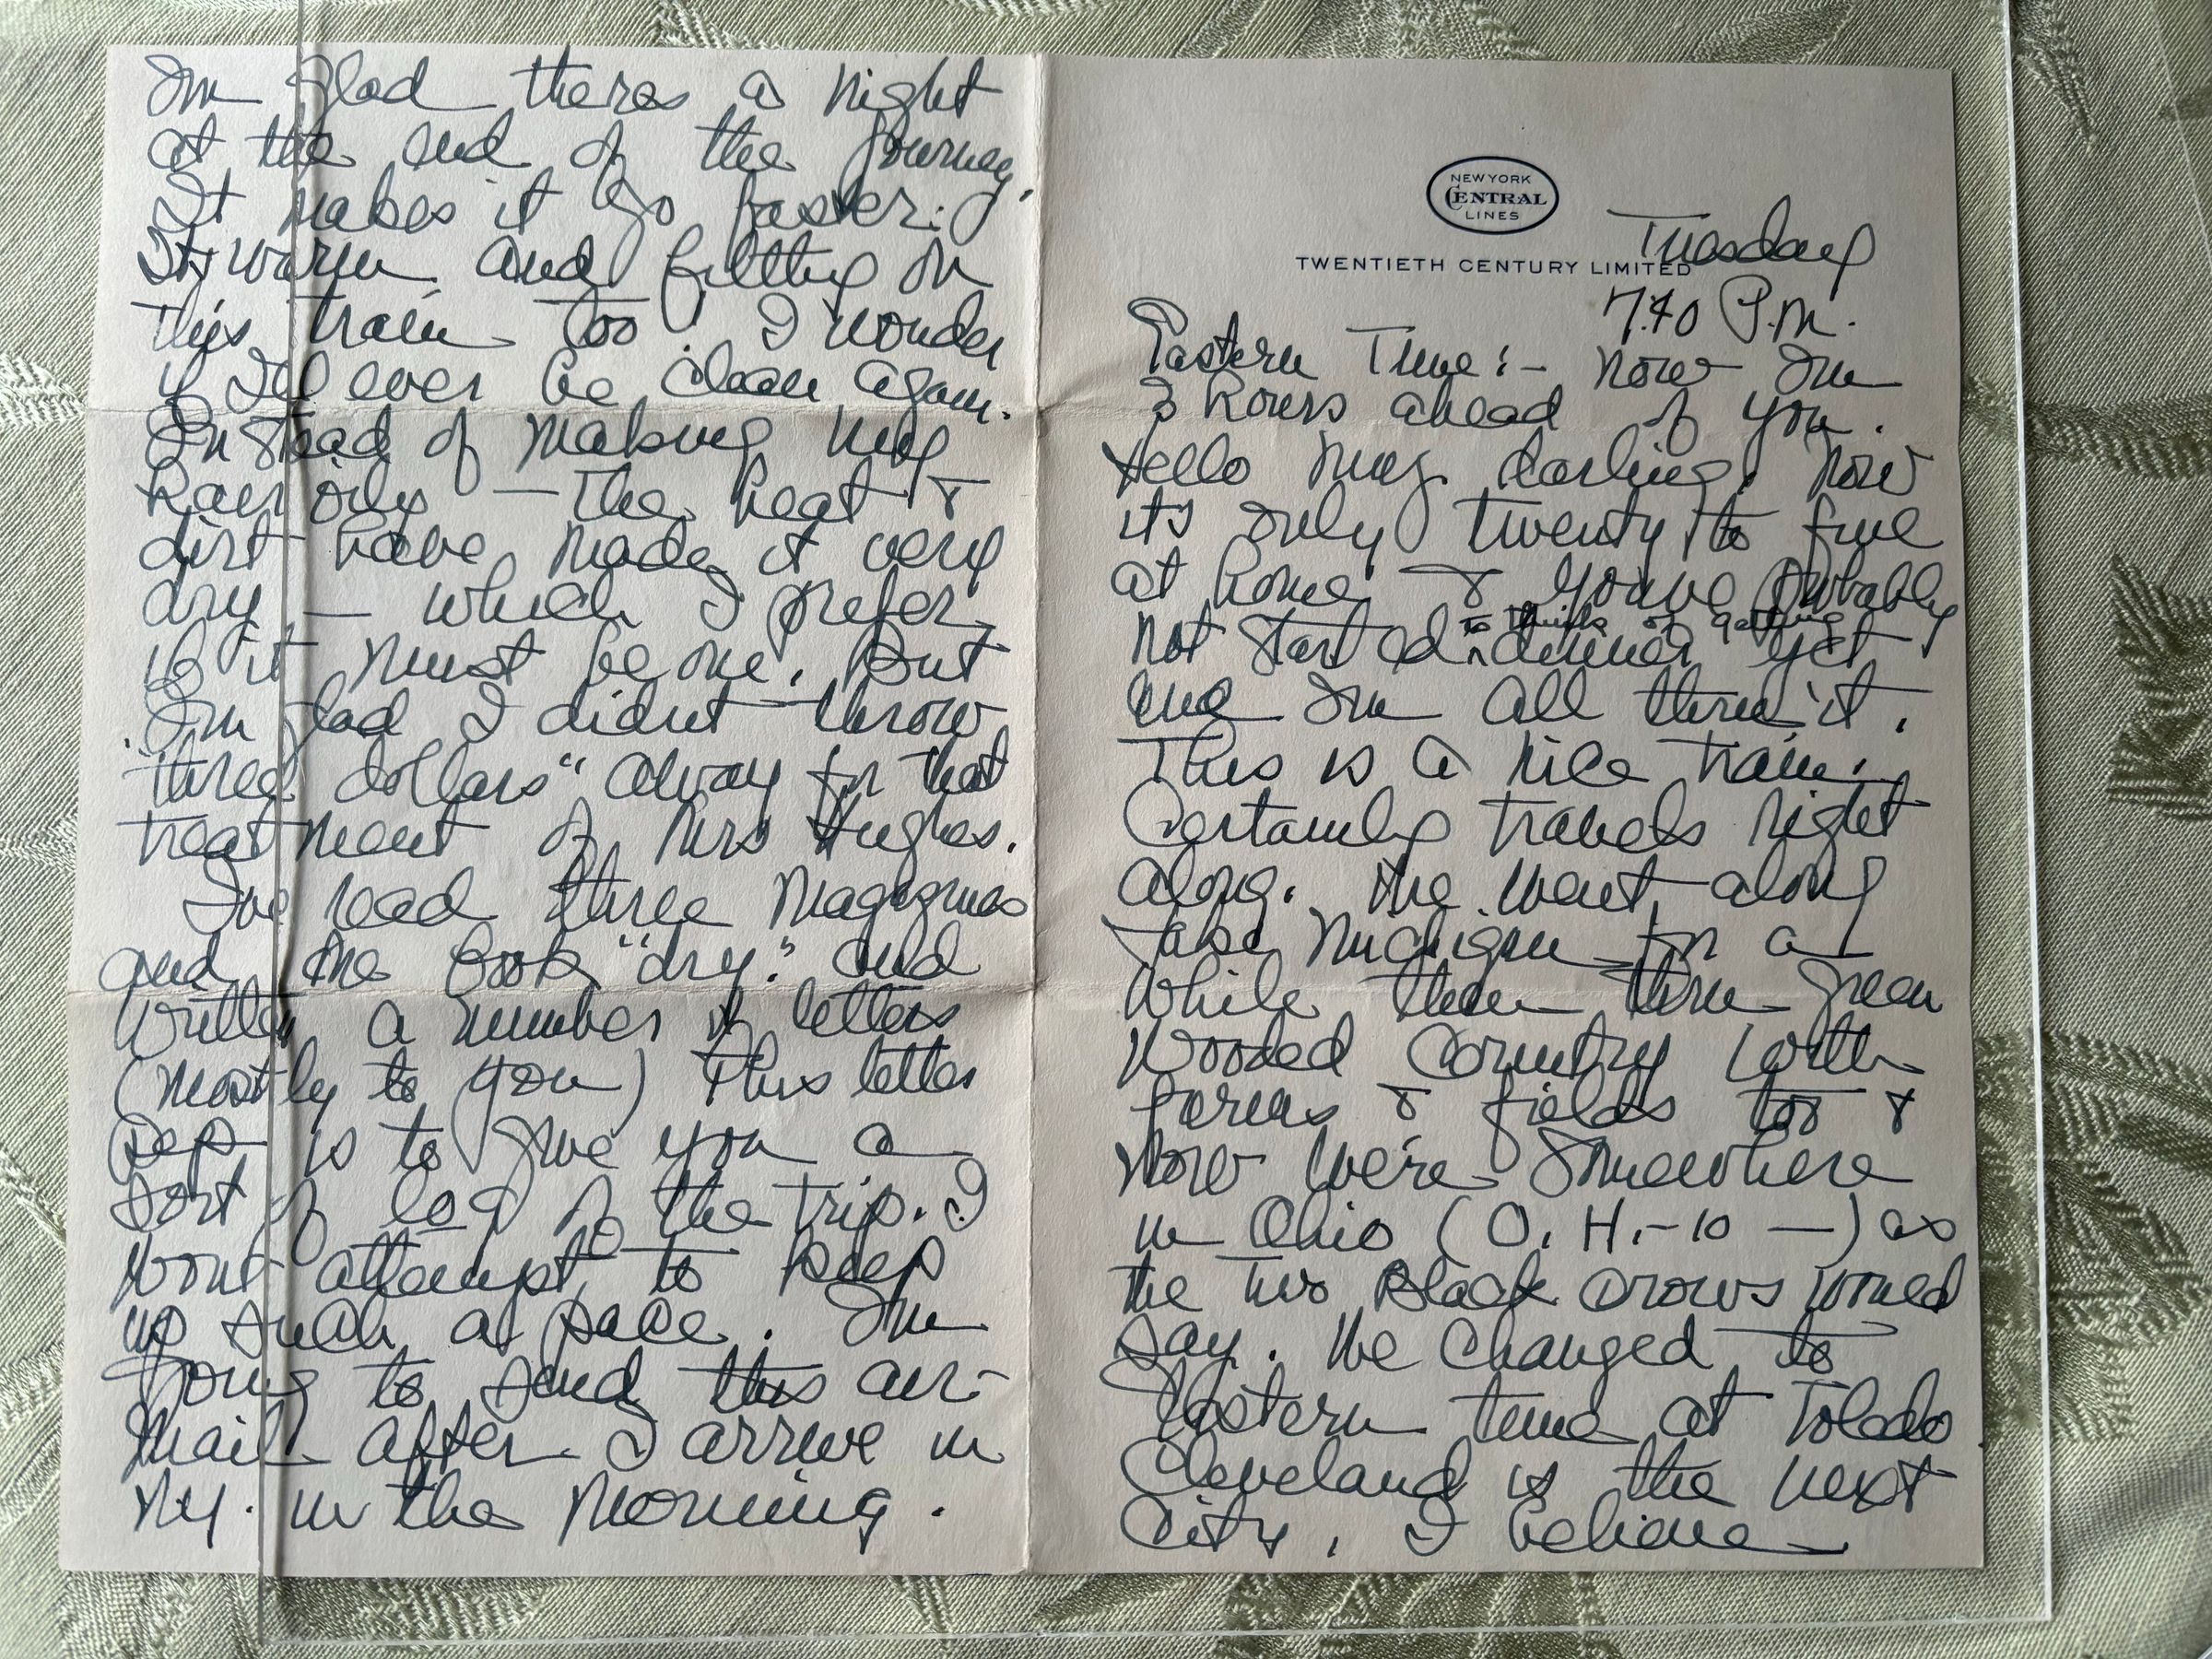 NEW YORK
CENTRAL
LINES
TWENTIETH CENTURY LIMITED
Tuesday
7:40 P.M.
Eastern Time:- Now Im
3 hours ahead of you.
Hello my darling. Now
its only twenty to five
at home & youve probably
not started to think of getting dinner yet
and Im all thru it.
This is a nice train.
Certainly travels right
along. We went along
Lake Michigan for a
while then thru green
wooded country with
farms & fields too &
now we're somewhere
in Ohio (O. H.-10 —) as
the Two Black Crows would
say. We changed to
Eastern time at Toledo
Cleveland is the next
City, I believe
Im glad theres a night
at the end of the journey.
It makes it go faster.
Its warm and filthy on
this train too. I wonder
if Ill ever be clean again.
Instead of making my
hair oily — the heat &
dirt have made it very
dry — which I prefer
if it must be one. But
Im glad I didnt throw
"three dollars" away for that
treatment of Mrs Hughes.
Ive read three magazines
and one book "dry." and
written a number of letters
(mostly to you) This letter
Pep is to give you a
sort of log of the trip. I
wont attempt to keep
up such a pace. Im
going to send this air-
mail after I arrive in
N.Y. in the morning.